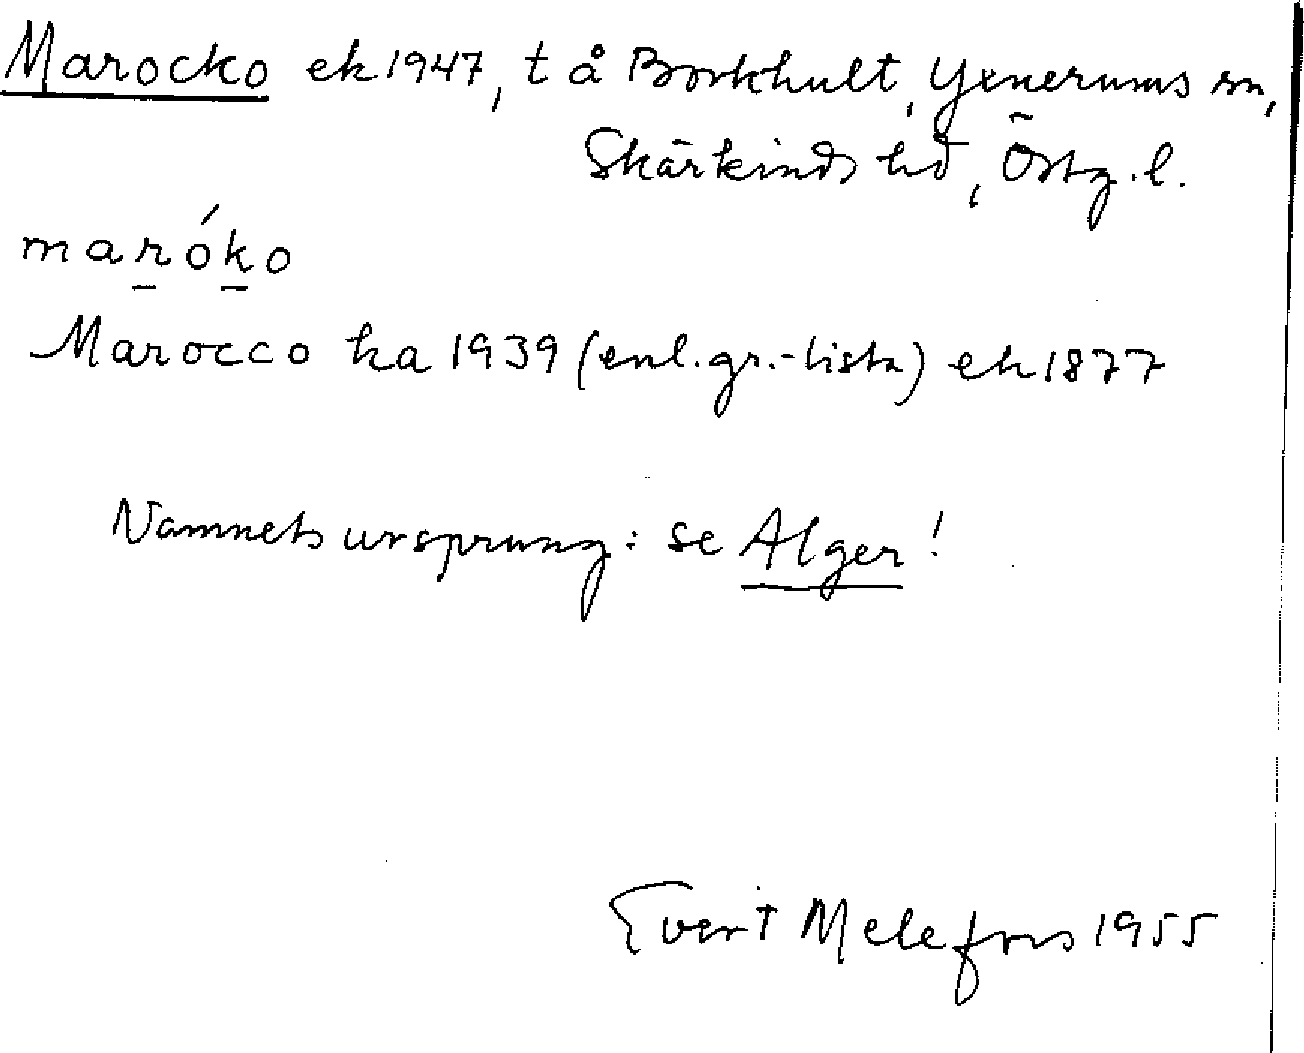 Marocko ek 1947, t å Borkhult, Yxnerums sn,
Skärkinds hd, Östg. l.
maróko
Marocco ha 1939 (enl. gr.-lista) ek 1877
Namnets ursprung: se Alger!
Evert Melefors 1955